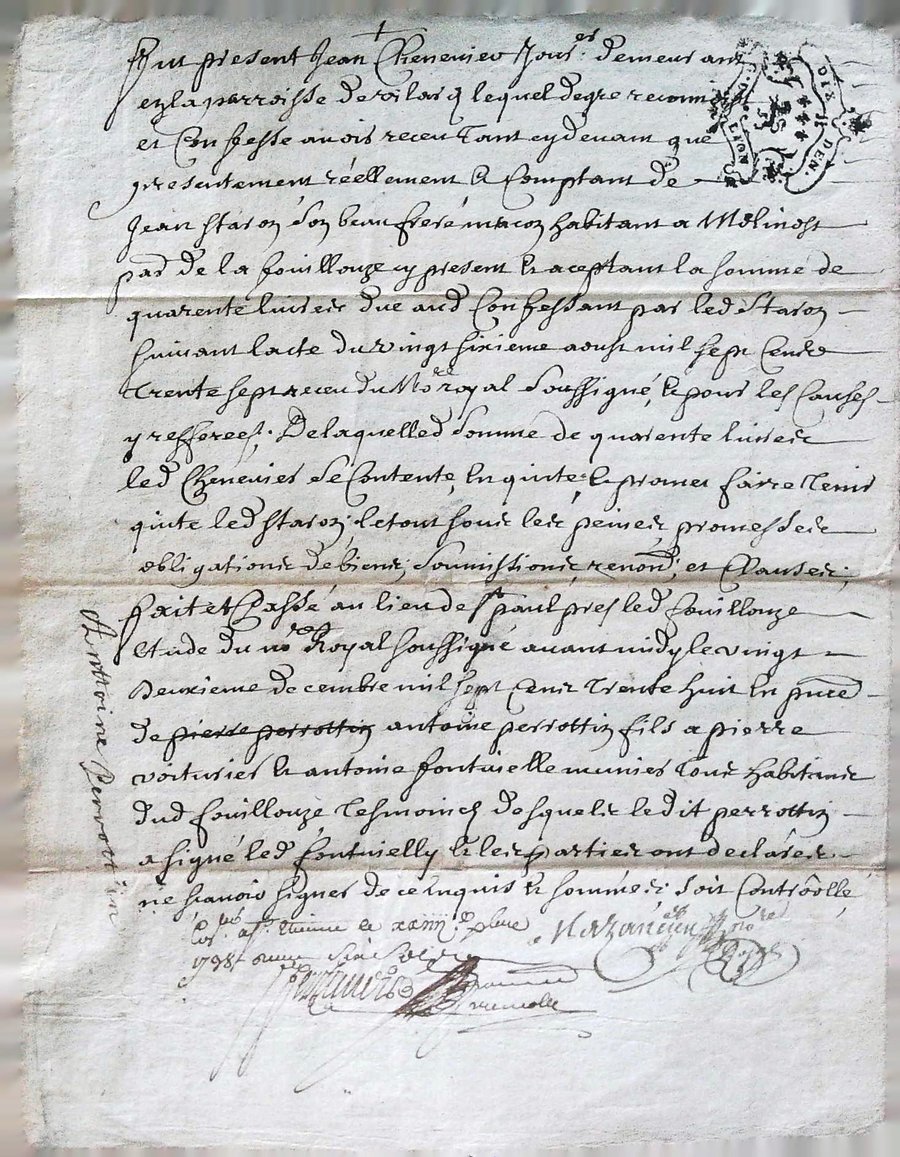 Fut present Jean Chenevier Jour.er demeurant
en la parroisse de vilars lequel de gre reconnoit
et Confesse avoir receu tant cy devant que
presentement réellement et Comptant de
Jean staron son beau frere macon habitant a Molinost
par de la fouillouze cy present et aceptant la somme de
quarente livres due aud Confessant par led Staron
suivant lacte du vingt sixieme aoust mil sept Cens
trente sept receu du No.re royal soussigné, et pour les Causes
y refferees. De laquelle d somme de quarente livres
led Chenevier se Contente, en quite, et promet faire tenir
quite led staron, le tout sous les peines, promesses
obligations de biens, soumissions, renon.d, et Clauses,
fait et Passé au lieu de S.t paul pres led fouillouze
etude du no.re Royal soussigné avant midy le vingt
deuxieme decembre mil sept Cens trente huit en pnce
de pierre perrottin antoine perrottin fils a pierre
voiturier et antoine fontvielle munier tous habitans
dud fouillouze tesmoins desquels ledit perrottin
a signé led fontvielle et les parties ont declaré
ne scavoir signer de ce enquis et sommes, soit Controollé
Antoine Perrottin
Con.lé a S.t Etienne le xxiiii.e xbre
1738 Six Sols
DIX DEN.
LION